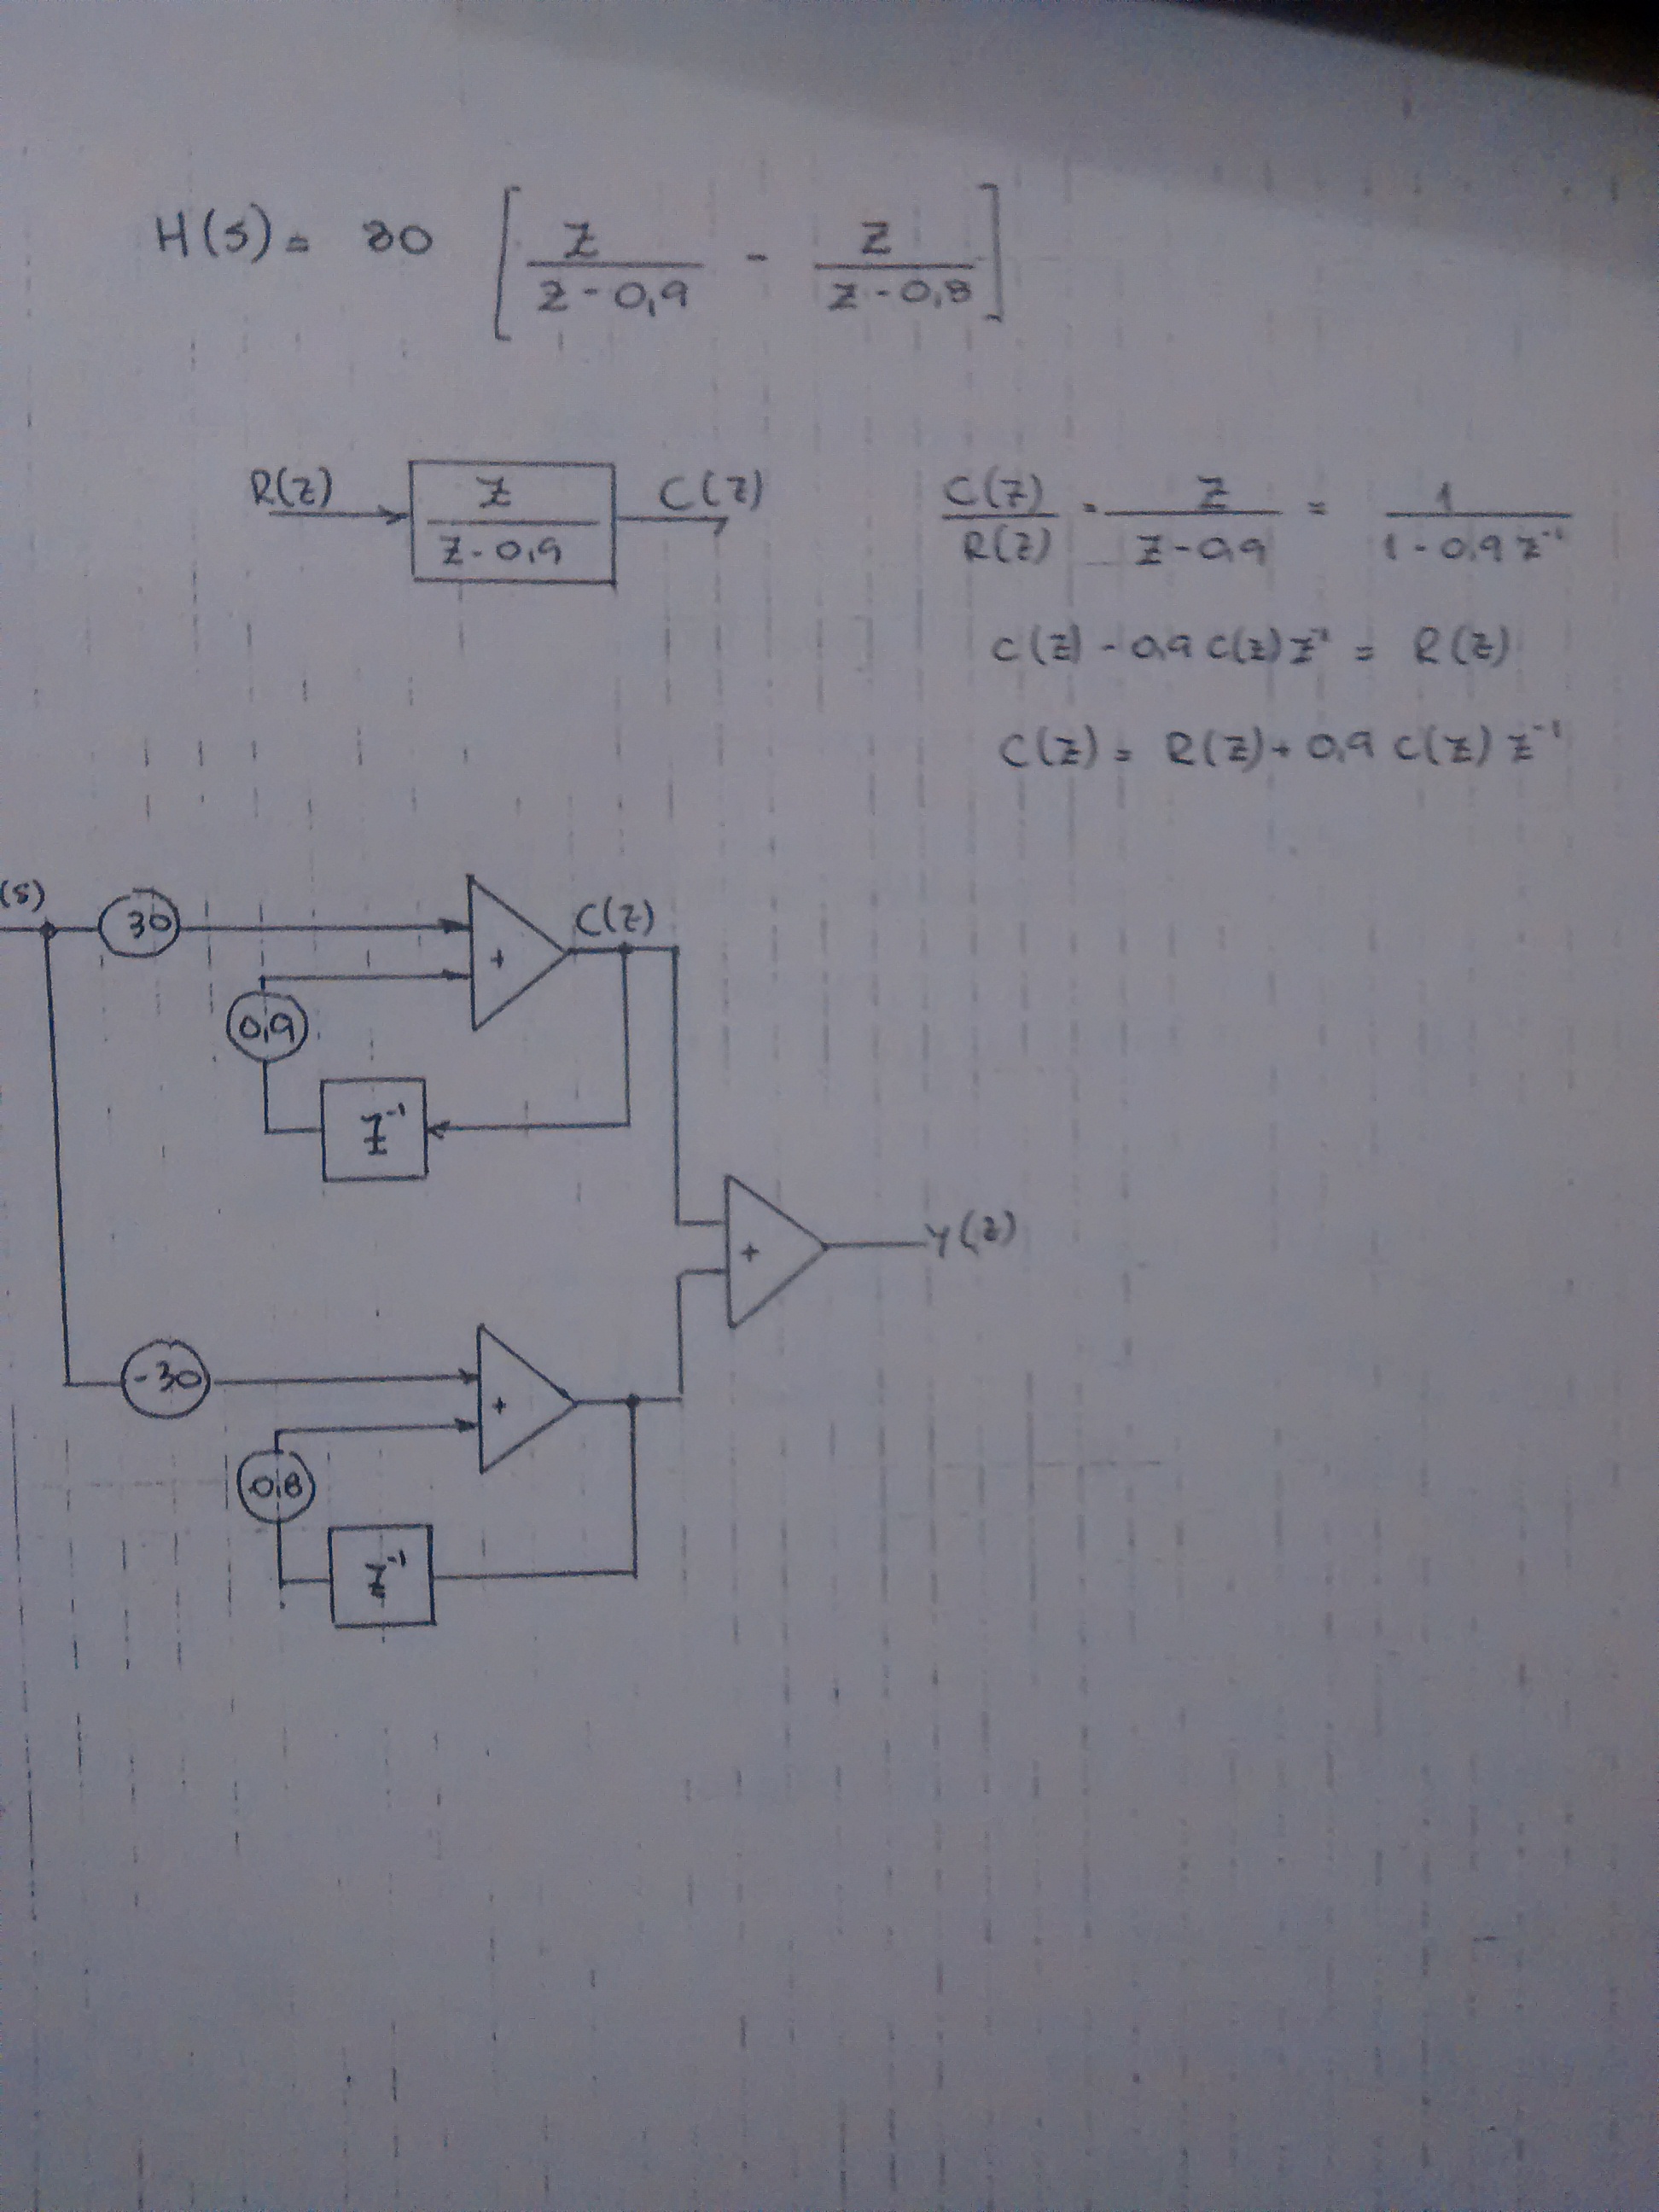 H(s) = 30 [ z / (z - 0,9) - z / (z - 0,8) ]
R(z) z / (z - 0,9) C(z)
C(z) / R(z) = z / (z - 0,9) = 1 / (1 - 0,9 z⁻¹)
C(z) - 0,9 C(z) z⁻¹ = R(z)
C(z) = R(z) + 0,9 C(z) z⁻¹
(s) 30 + C(z)
0,9
z⁻¹
+ Y(z)
-30 +
0,8
z⁻¹